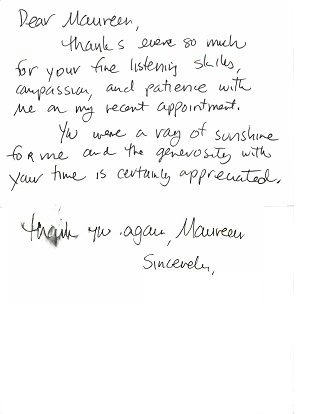 Dear Maureen,
Thanks ever so much
for your fine listening skills,
compassion, and patience with
me on my recent appointment.
You were a ray of sunshine
for me and the generosity with
your time is certainly appreciated.
Thank you again, Maureen
Sincerely,